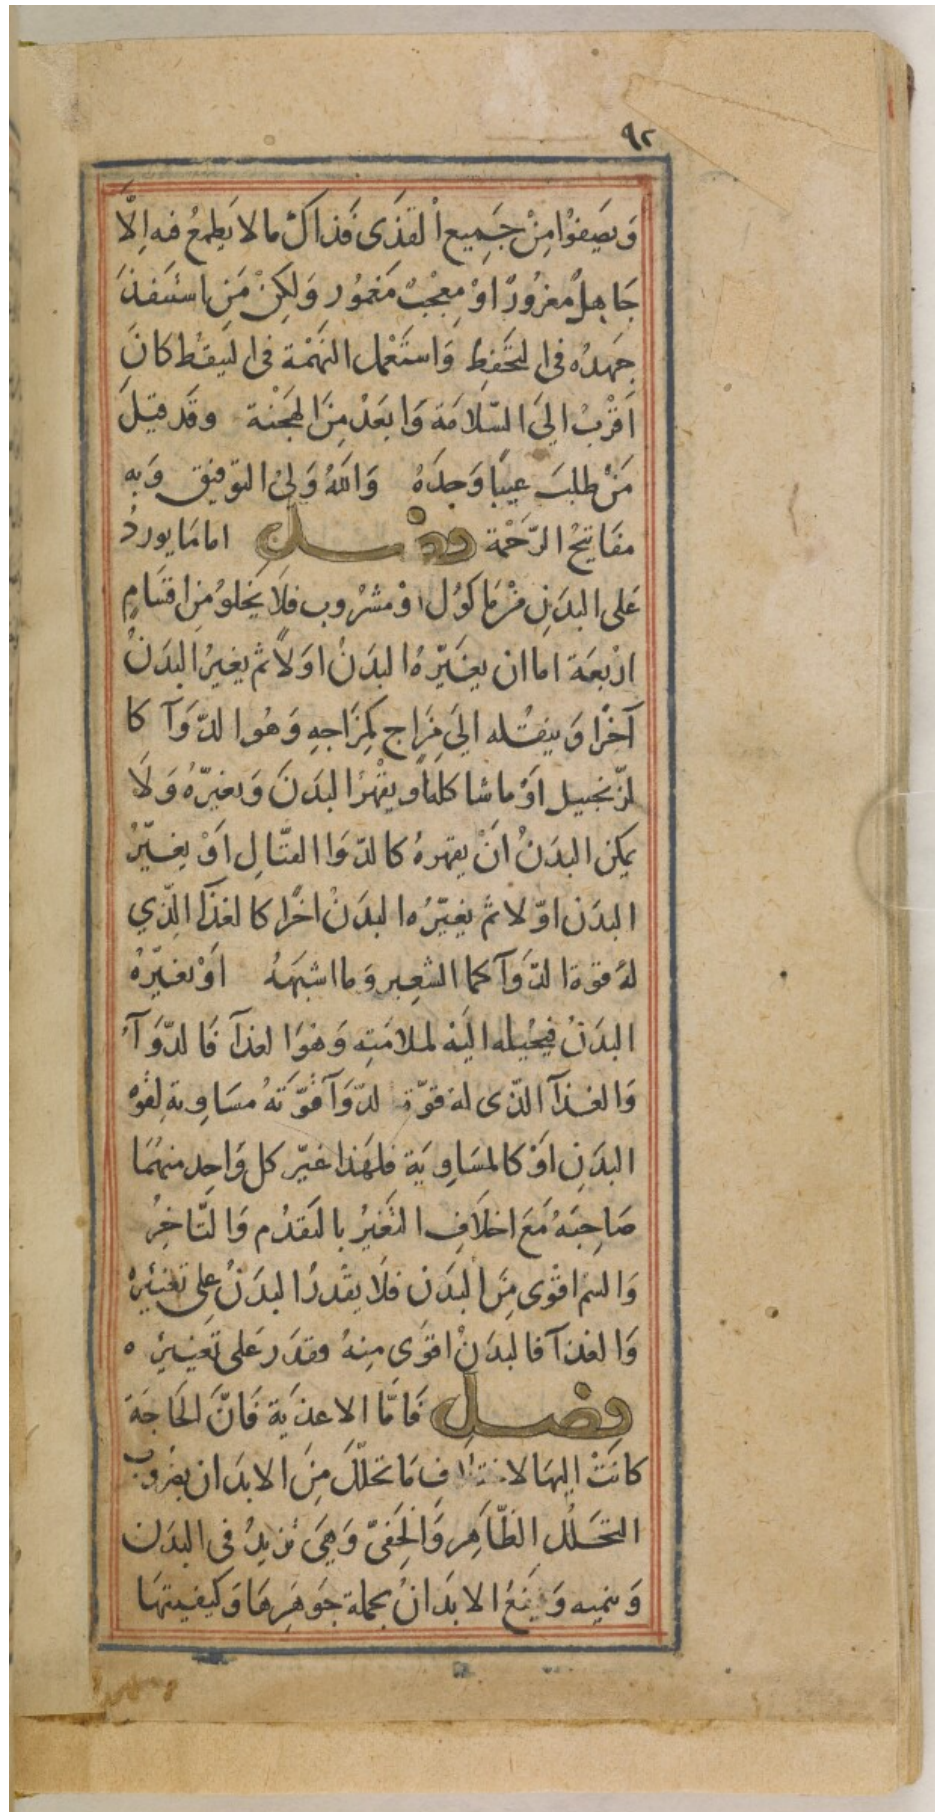 ٩٢
وَيَصفوُا مِنْ جَمِيع اْلقَذَى فَذاكَ مالا يَطمعُ فيه اِلَّا
جَاهِلٌ مغرُورٌ اوْ مِعجْبٌ مَغمُور وَلكِنْ مَنِ استَنفذَ
جهدُه فى التحَّفظِ وَاستَعْمل التهمْة فى التيقظ كانَ
اَقْربْ اليَ السّلامَة وَابعَدْ مِنَ الهجْنة وقَد قيلَ
مَنْ طلبَ عيبًا وَجدَهُ وَاللهُ وَليُ التوفيق وَبه
مفَاتيحْ الرّحَمْة فصْـــل اما مَا يوردُ
عَلى البدَنِ مْنْ مَا كوُل اوْ مشرْوب فلَا يَخلوُ مْنِ اقسَامٍ
اربعَة اما ان يغيَّرّهُ البدَنُ اوَلاً ثم يغيرُ البدَنُ
آخرًا وَ ينقُله اليَ مزَاج كمِزَاجهِ وَهُوا لدّوَآ كا
لزّنجبيل اوَ ما شاكلهُ او يقْهرُ البدَنَ وَيغيرّهُ وَلَا
يمكن البدَنُ انَ يقهرهُ كالدّوَا القتَّالِ اَوْ يغيّرُ
البدَن اوّلا ثم يغيّرهُ البدَنْ اخرًا كا لغذَآ الذّي
لهُ قوة الدّوَآ كما الشعِير وَما اشبَهَهُ اَوْ يغيّرهُ
البدَنُ فيحُيله اليَه لملامَتِه وَهوَا لغذآ فَا لدّوَآءُ
وَالغذآ الذّى لهُ قوّة لدّوَآ قوَّتَهُ مسَاوية لقوه
البدَنِ اوْ كالمسَاوِيَة فلهَذا غيّر كل وَاحِد منهُمَا
صَاحِبَهُ مَعَ اخلَافِ التَغيرُ بالتَقدُم وَالتَّاخِرُ
وَالسم اقوْى مِنَ البدَن فلَا يقْدرُ البدَنُ على تغييرهُ
وَالغذآ فالبدَنْ اقوَى مِنهُ وقدَر عَلى تغيير ه
فصـــل فَامَّا الاغذيَة فَانَّ الحَاجَة
كانَتْ اليهَا لا ف مَا تحَللّ مِنَ الابدَان بضرُوب
التحَلّل الظّاهِر وَالخِفىّ وَهِىَ تزيدُ فى البدَن
وَ ينميه وَ الابدَانُ بجملة جَوهَرِهَا وَكيفيتهَا